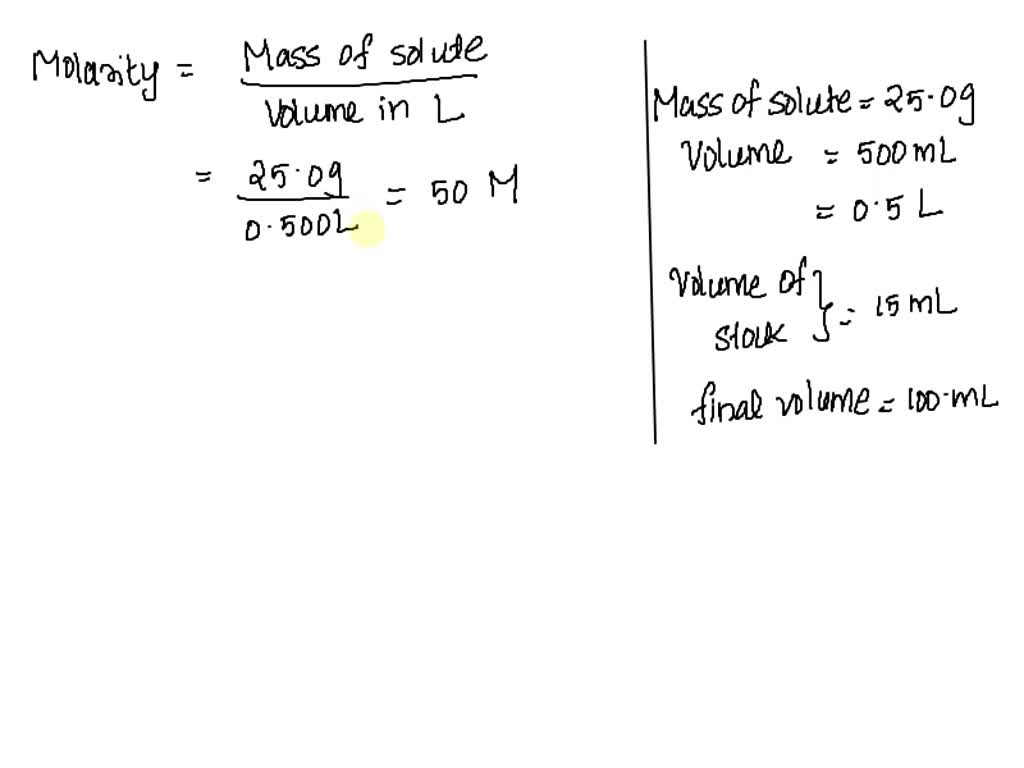 Molarity = Mass of solute / Volume in L
= 25.0g / 0.500L = 50 M
Mass of solute = 25.0g
Volume = 500 mL
= 0.5 L
Volume of stock } = 15 mL
final volume = 100.mL